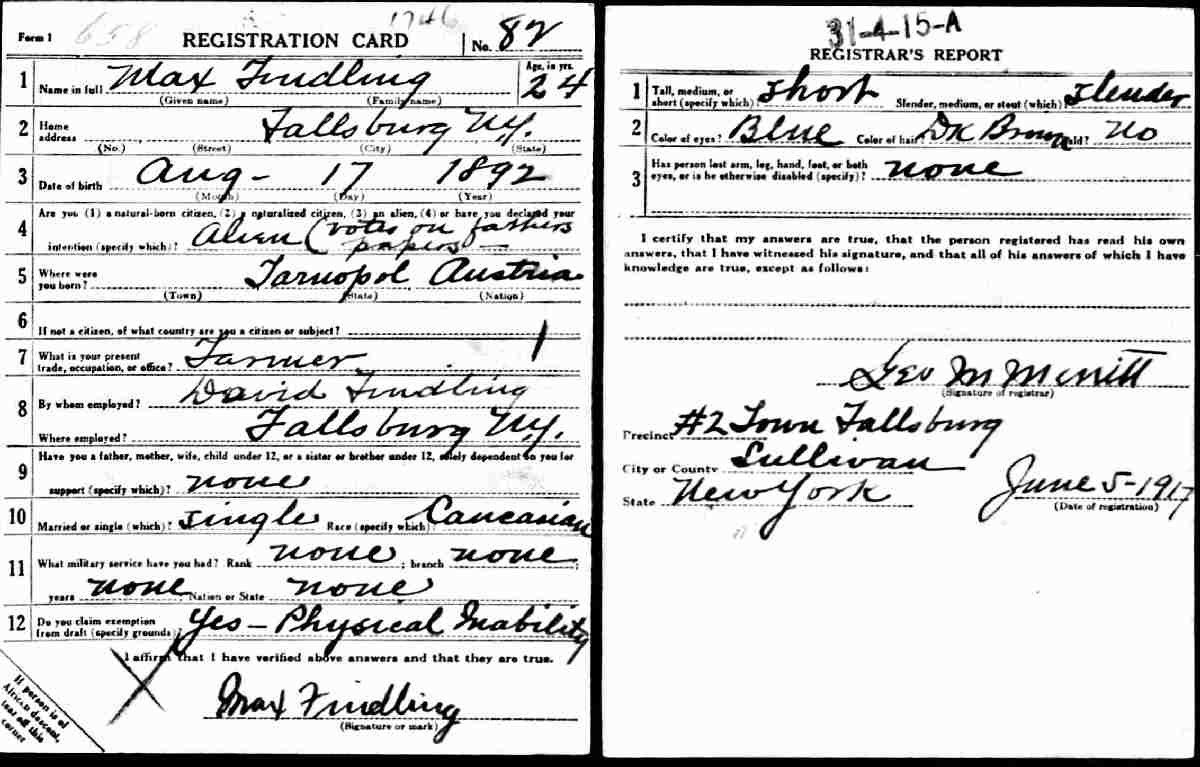 658 1746
Form 1 REGISTRATION CARD No. 82
1 Name in full Max Findling Age, in yrs. 24
(Given name) (Family name)
2 Home address Fallsburg N.Y.
(No.) (Street) (City) (State)
3 Date of birth Aug - 17 1892
(Month) (Day) (Year)
4 Are you (1) a natural-born citizen, (2) a naturalized citizen, (3) an alien, (4) or have you declared your
intention (specify which)? Alien (votes on fathers
papers -
5 Where were you born? Tarnopol Austria
(Town) (State) (Nation)
6 If not a citizen, of what country are you a citizen or subject?
7 What is your present trade, occupation, or office? Farmer 1
8 By whom employed? David Findling
Where employed? Fallsburg N.Y.
9 Have you a father, mother, wife, child under 12, or a sister or brother under 12, solely dependent on you for
support (specify which)? none
10 Married or single (which)? Single Race (specify which) Caucasian
11 What military service have you had? Rank none ; branch none ;
years none Nation or State none
12 Do you claim exemption from draft (specify grounds)? Yes - Physical Inability
I affirm that I have verified above answers and that they are true.
X
Max Findling
(Signature or mark)
If person is of
African descent,
tear off this
corner
31-4-15-A
REGISTRAR'S REPORT
1 Tall, medium, or short (specify which) Short Slender, medium, or stout (which) Slender
2 Color of eyes? Blue Color of hair? Dk Brown Bald? No
3 Has person lost arm, leg, hand, foot, or both
eyes, or is he otherwise disabled (specify)? none
I certify that my answers are true, that the person registered has read his own
answers, that I have witnessed his signature, and that all of his answers of which I have
knowledge are true, except as follows:
Geo M Merritt
(Signature of registrar)
Precinct #2 Town Fallsburg
City or County Sullivan
State New York June 5-1917
(Date of registration)